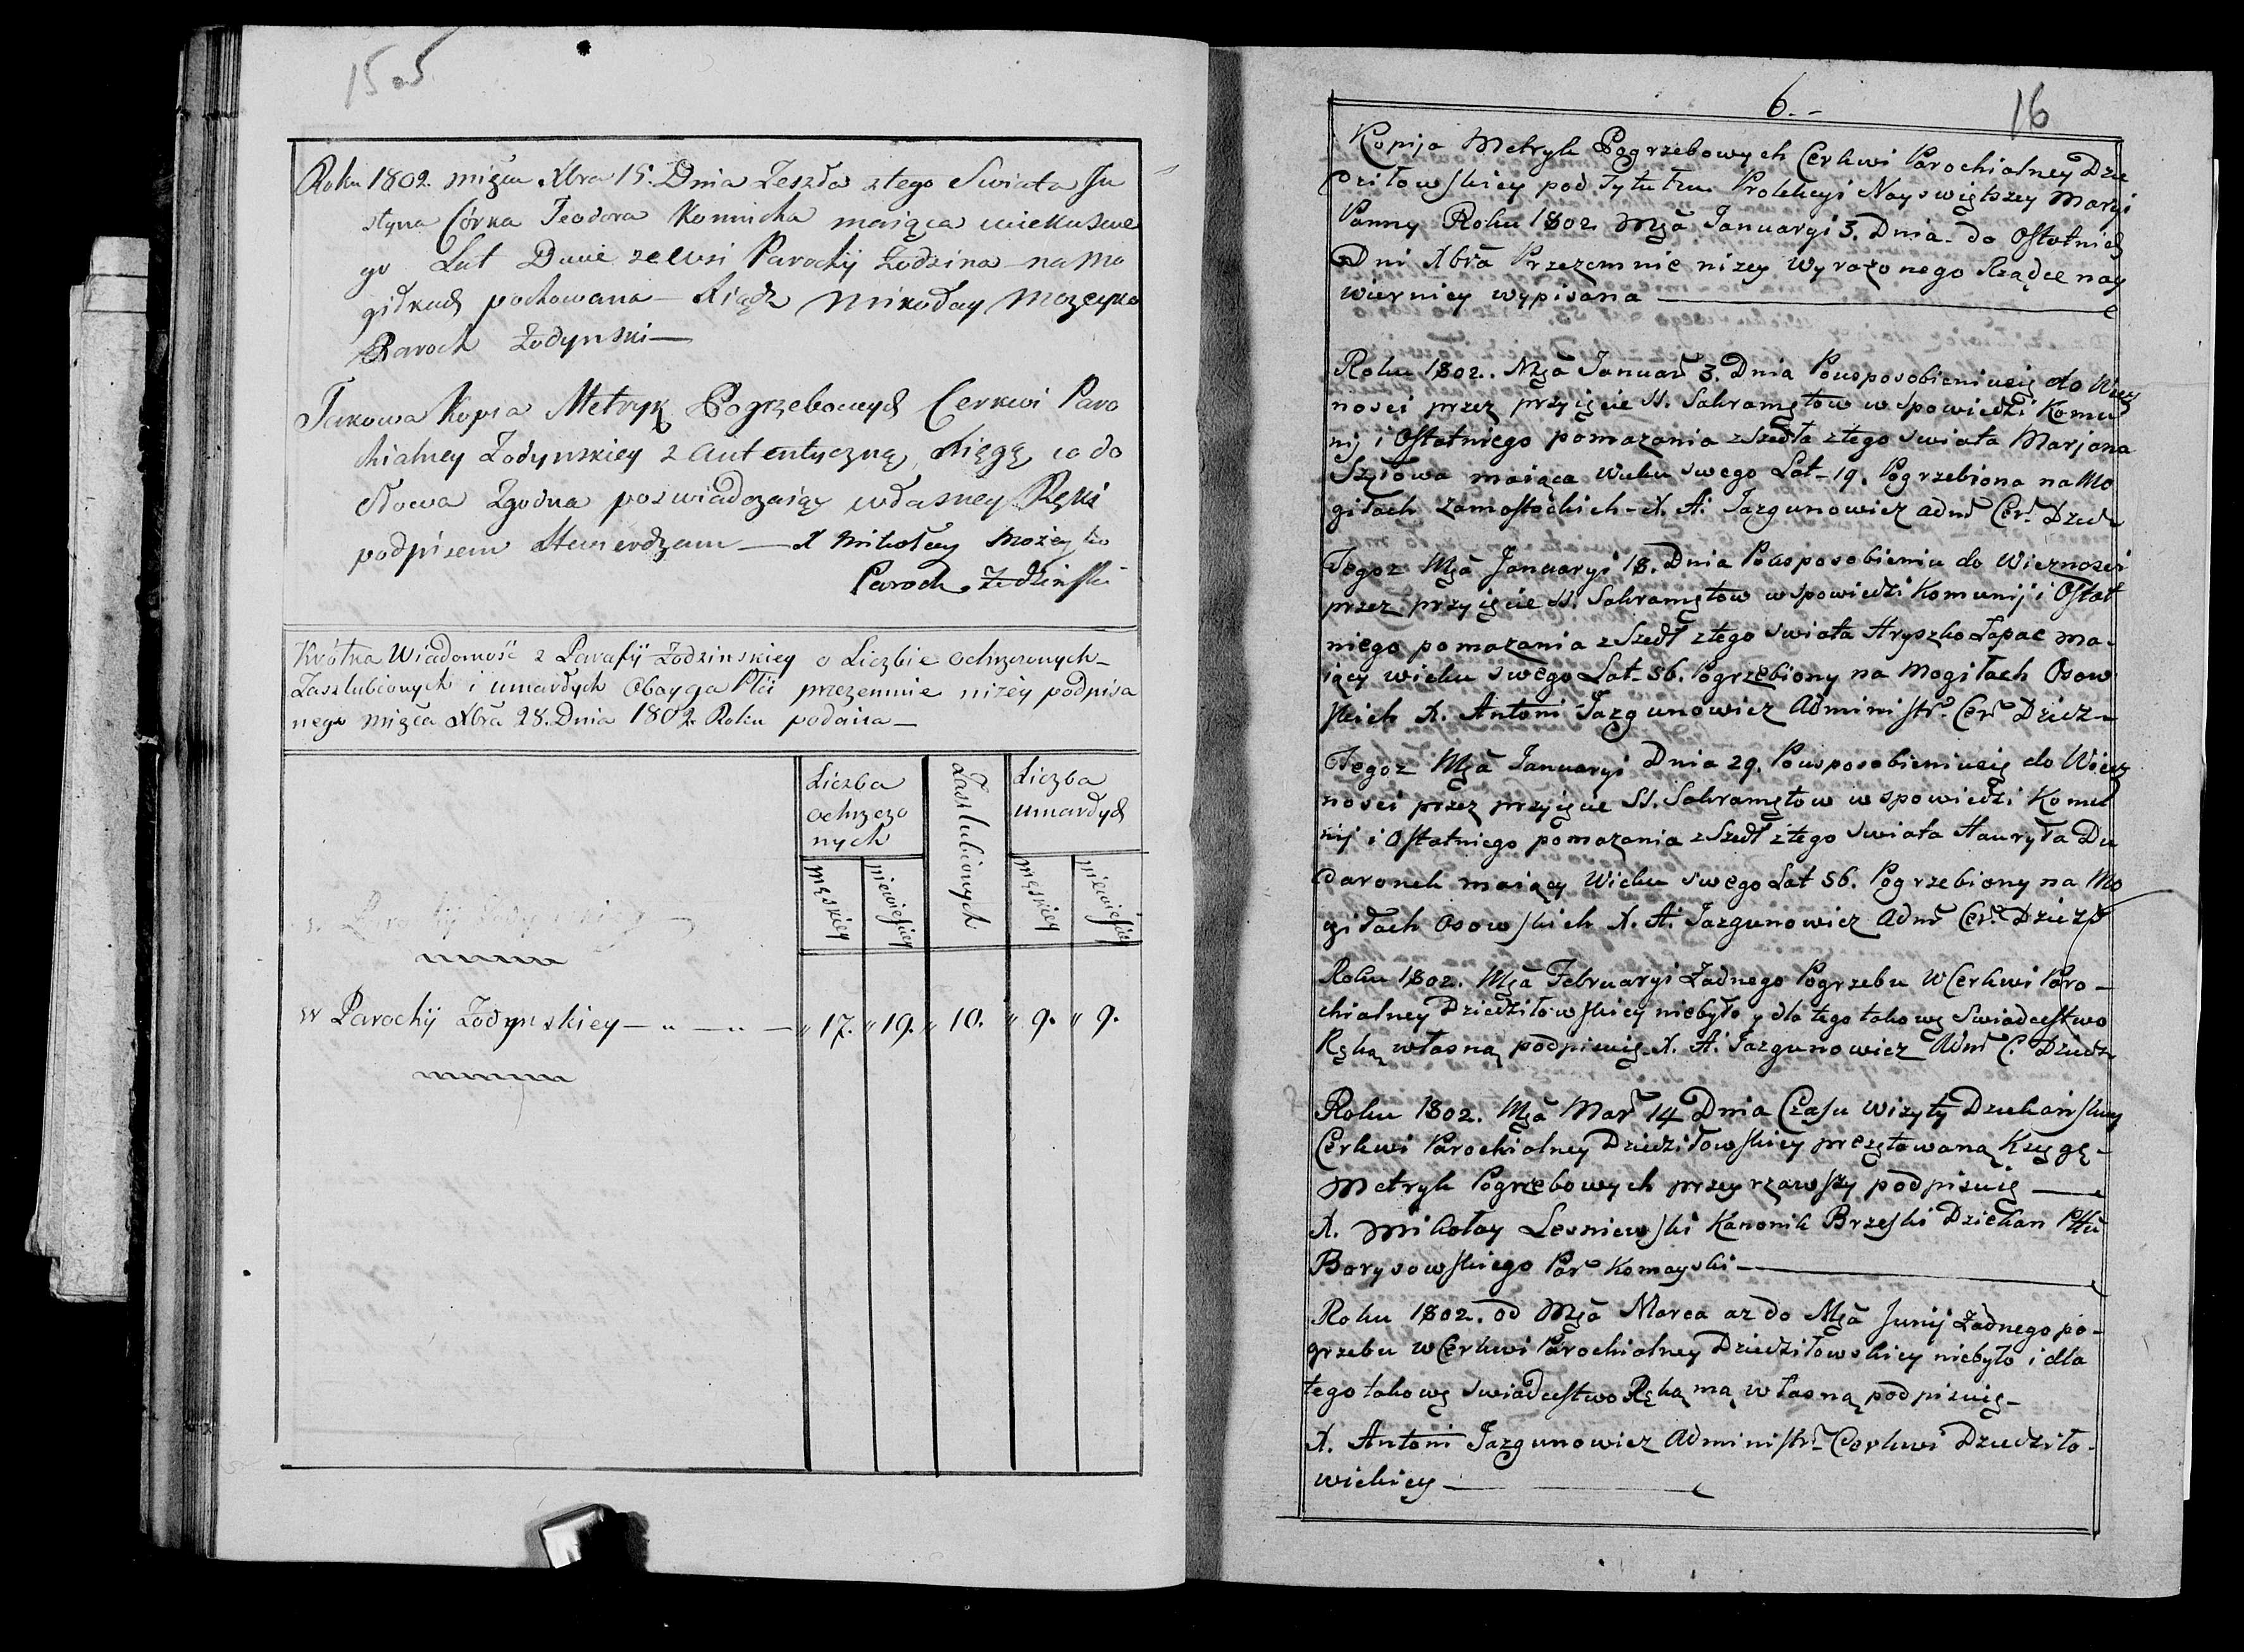 15 o5
Roku 1802. mięca Xbra 15. Dnia Zeszła z tego Swiata Ju
styna Córka Teodora Kominka maiąca wieku swe
go Lat Dwie ze wsi Parochij Zodzina na Mo
giłkach pochowana – Xiądz Mikołay Mozeyko
Paroch Zodynski —
Takowa Kopia Metryk Pogrzebowych Cerkwi Paro
chialney Zodynskiey z autentyczną Xięgą co do
słowa Zgodna poswiadczaiąc własney Ręki
podpisem stwierdzam — X Mikołay Możeyko
Paroch Zodzinski
Krótka Wiadomość z Parafij Zodzinskiey o Liczbie ochrzconych –
Zaszlubionych i umarłych Oboyga Płci przezemnie niżey podpisa
nego mięca Xbrã 28. Dnia 1802. Roku podana —
Liczba
ochrzczo
nych
Zaszlubionych
Liczba
umarłych
męskiey
niewieskiey
męskiey
niewieskiey
W Parochij Zodynskiey — „ — „ — „ 17. „ 19. „ 10. „ 9. „ 9.
6. –
16
Kopija Metryk Pogrzebowych Cerkwi Parochialney Dzie
dziłowskiey pod Tytułem Protekcyi Nayswiętszey Maryi
Panny Roku 1802 Mçã Januaryi 3. Dnia do Ostatnich
Dni Xbrã Przezemnie nizey Wyrazonego Rządce nay
wierniey wypisana
Roku 1802. Mçã Januar 3. Dnia Pousposobieniusię do Wiecz
nosci przez przyięcie SS. Sakramętow w Spowiedzi Komu
nij i Ostatniego pomazania zSzedła ztego swiata Marjana
Szyłowa maiąca wieku swego Lat – 19. Pogrzebiona na Mo
giłach Zamostockich – X. A. Jazgunowicz adm̃ Cer. Dzied
Tegoz Mçã Januaryi 18. Dnia Pousposobieniu do Wiecznosci
przez przyięcie SS. Sakramętow w Spowiedzi Komunij i Ostat
niego pomazania zSzedł ztego swiata Hryszko Łapac ma-
iący wieku swego Lat – 56. Pogrzebiony na Mogiłach Osow
skich X. Antoni Jazgunowicz Administr. Cer. Dziedz –
Tegoz Mçã Januaryi Dnia 29. Pousposobieniusię do Wiecz
nosci przez przyięcie SS. Sakramętow w spowiedzi Komu
nij i Ostatniego pomazania zSzedł ztego swiata Hauryła Du
daronek maiący Wieku swego Lat 56. Pogrzebiony na Mo
giłach Osowskich X. A. Jazgunowicz Adm̃ Cer. Dziedz
Roku 1802. Mçã Februaryi Żadnego Pogrzebu w Cerkwi Paro –
chialney Dziedziłowskiey niebyło y dla tego takowę Swiadectwo
Ręką własną podpisuię. X. A. Jazgunowicz Adm̃ C. Dziedz
Roku 1802. Mçã Mar 14 Dnia Czasu wizyty Dziekańskiey
Cerkwi Parochialney Dziedziłowskiey prezętowaną Xsygę –
Metryk Pogrzebowych przeyrzawszy podpisuię —
X. Mikołay Lesniewski Kanonik Brzeski Dziekan Pttu
Borysowskiego Par Komayski —
Roku 1802. od Mçã Marca az do Mçã Junij Żadnego po-
grzebu w Cerkwi Parochialney Dziedziłowskiey niebyło i dla
tego takowę swiadectwo Ręką mą własną podpisuię –
X. Antoni Jazgunowicz Administr. Cerkwi Dziedziło-
wickiey —